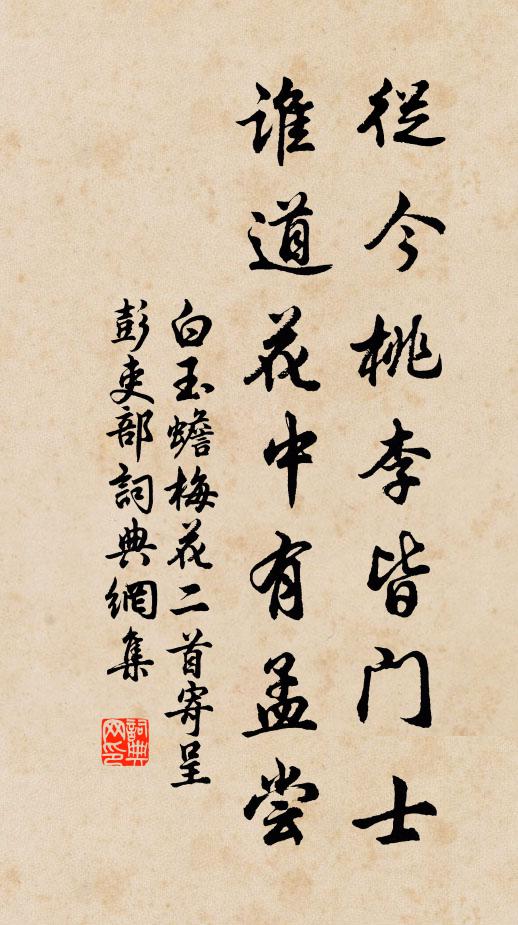 從今桃李皆門士
誰道花中有孟尝
白玉蟾梅花二首寄呈
彭吏部詞典網集
詞典
网印